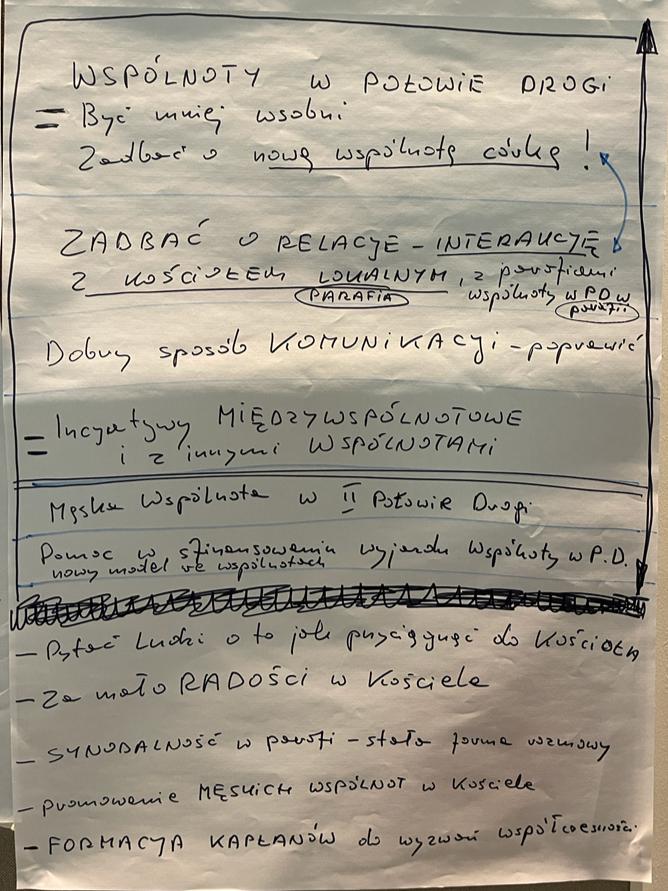 WSPÓLNOTY W POŁOWIE DROGI
= Być mniej wsobni
Zadbać o nową wspólnotę córkę!
ZADBAĆ O RELACJE - INTERAKCJĘ
Z KOŚCIOŁEM LOKALNYM, z parafiami
PARAFIA wspólnoty W PD w
parafii
Dobry sposób KOMUNIKACJI - poprawić
= Incjatywy MIĘDZYWSPÓLNOTOWE
i z innymi WSPÓLNOTAMI
Męska Wspólnota w II Połowie Drogi
Pomoc w sfinansowaniu wyjazdu Wspólnoty w P.D.
nowy model we wspólnotach
- Pytać Ludzi o to jak przyciągnąć do KOŚCIOŁA
- Za mało RADOŚCI w Kościele
- SYNODALNOŚĆ w parafi - stała forma rozmowy
- promowanie MĘSKICH WSPÓLNOT w Kościele
- FORMACJA KAPŁANÓW do wyzwań współczesności.